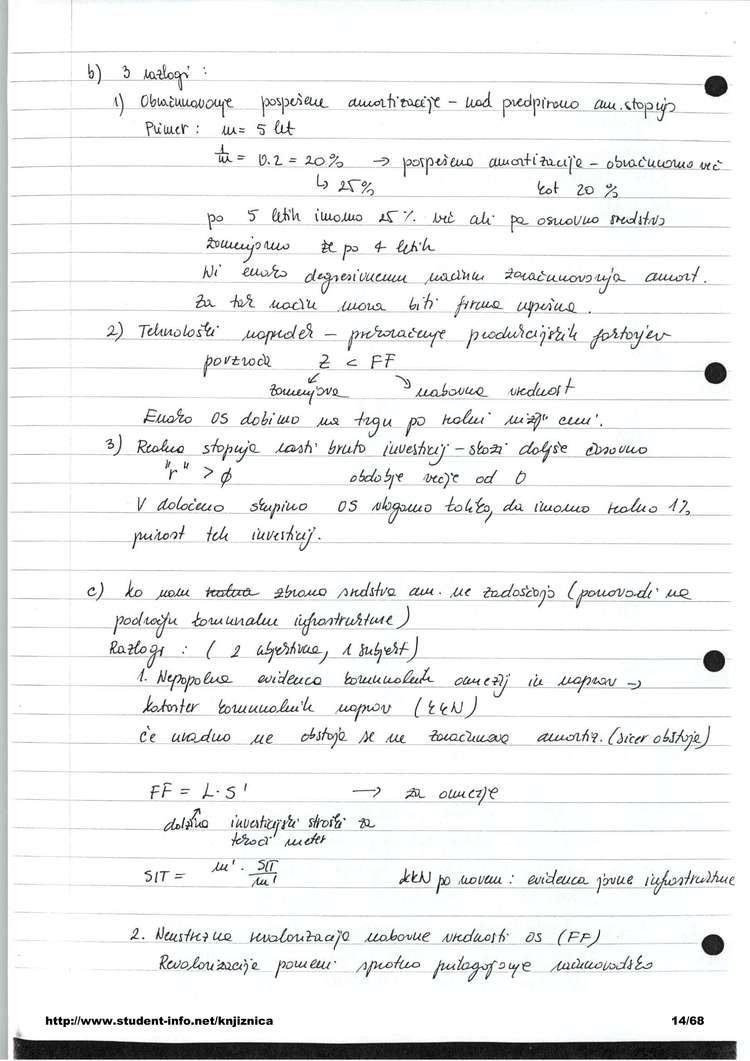 b) 3 razlogi :
1) Obračunavanje pospešene amortizacije – nad predpisano am. stopnjo
Primer : m = 5 let
1/m = 0.2 = 20% → pospešena amortizacija – obračunamo več
↳ 25% kot 20 %
po 5 letih imamo 25 % več ali pa osnovno sredstvo
zamenjamo že po 4 letih
Ni enako degresivnemu načinu zaračunavanja amort.
Za tak način mora biti firma uspešna.
2) Tehnološki napredek – prevračanje produkcijskih faktorjev
povzroča Z < FF
zamenjava nabavna vrednost
Enako OS dobimo na trgu po realni nižji ceni.
3) Realna stopnja rasti bruto investicij – skozi daljše časovno
"r" > ϕ obdobje večje od 0
V določeno skupino OS vlagamo toliko, da imamo realno 1%
prirast teh investicij.
c) ko nam zbrana sredstva am. ne zadoščajo (ponavadi na
področju komunalne infrastrukture)
Razlogi : ( 2 objektivna, 1 subjekt)
1. Nepopolna evidenca komunalnih omrežij in naprav →
kataster komunalnih naprav (KKN)
če uradno ne obstaja se ne zaračunava amortiz. (sicer obstaja)
FF = L · S' → za omrežje
dolžina investicijski stroški za
tekoči meter
SIT = m' · SIT/m' KKN po novem : evidenca javne infrastrukture
2. Neustrezna revalorizacija nabavne vrednosti OS (FF)
Revalorizacija pomeni sprotno prilagajanje računovodsko
http://www.student-info.net/knjiznica 14/68